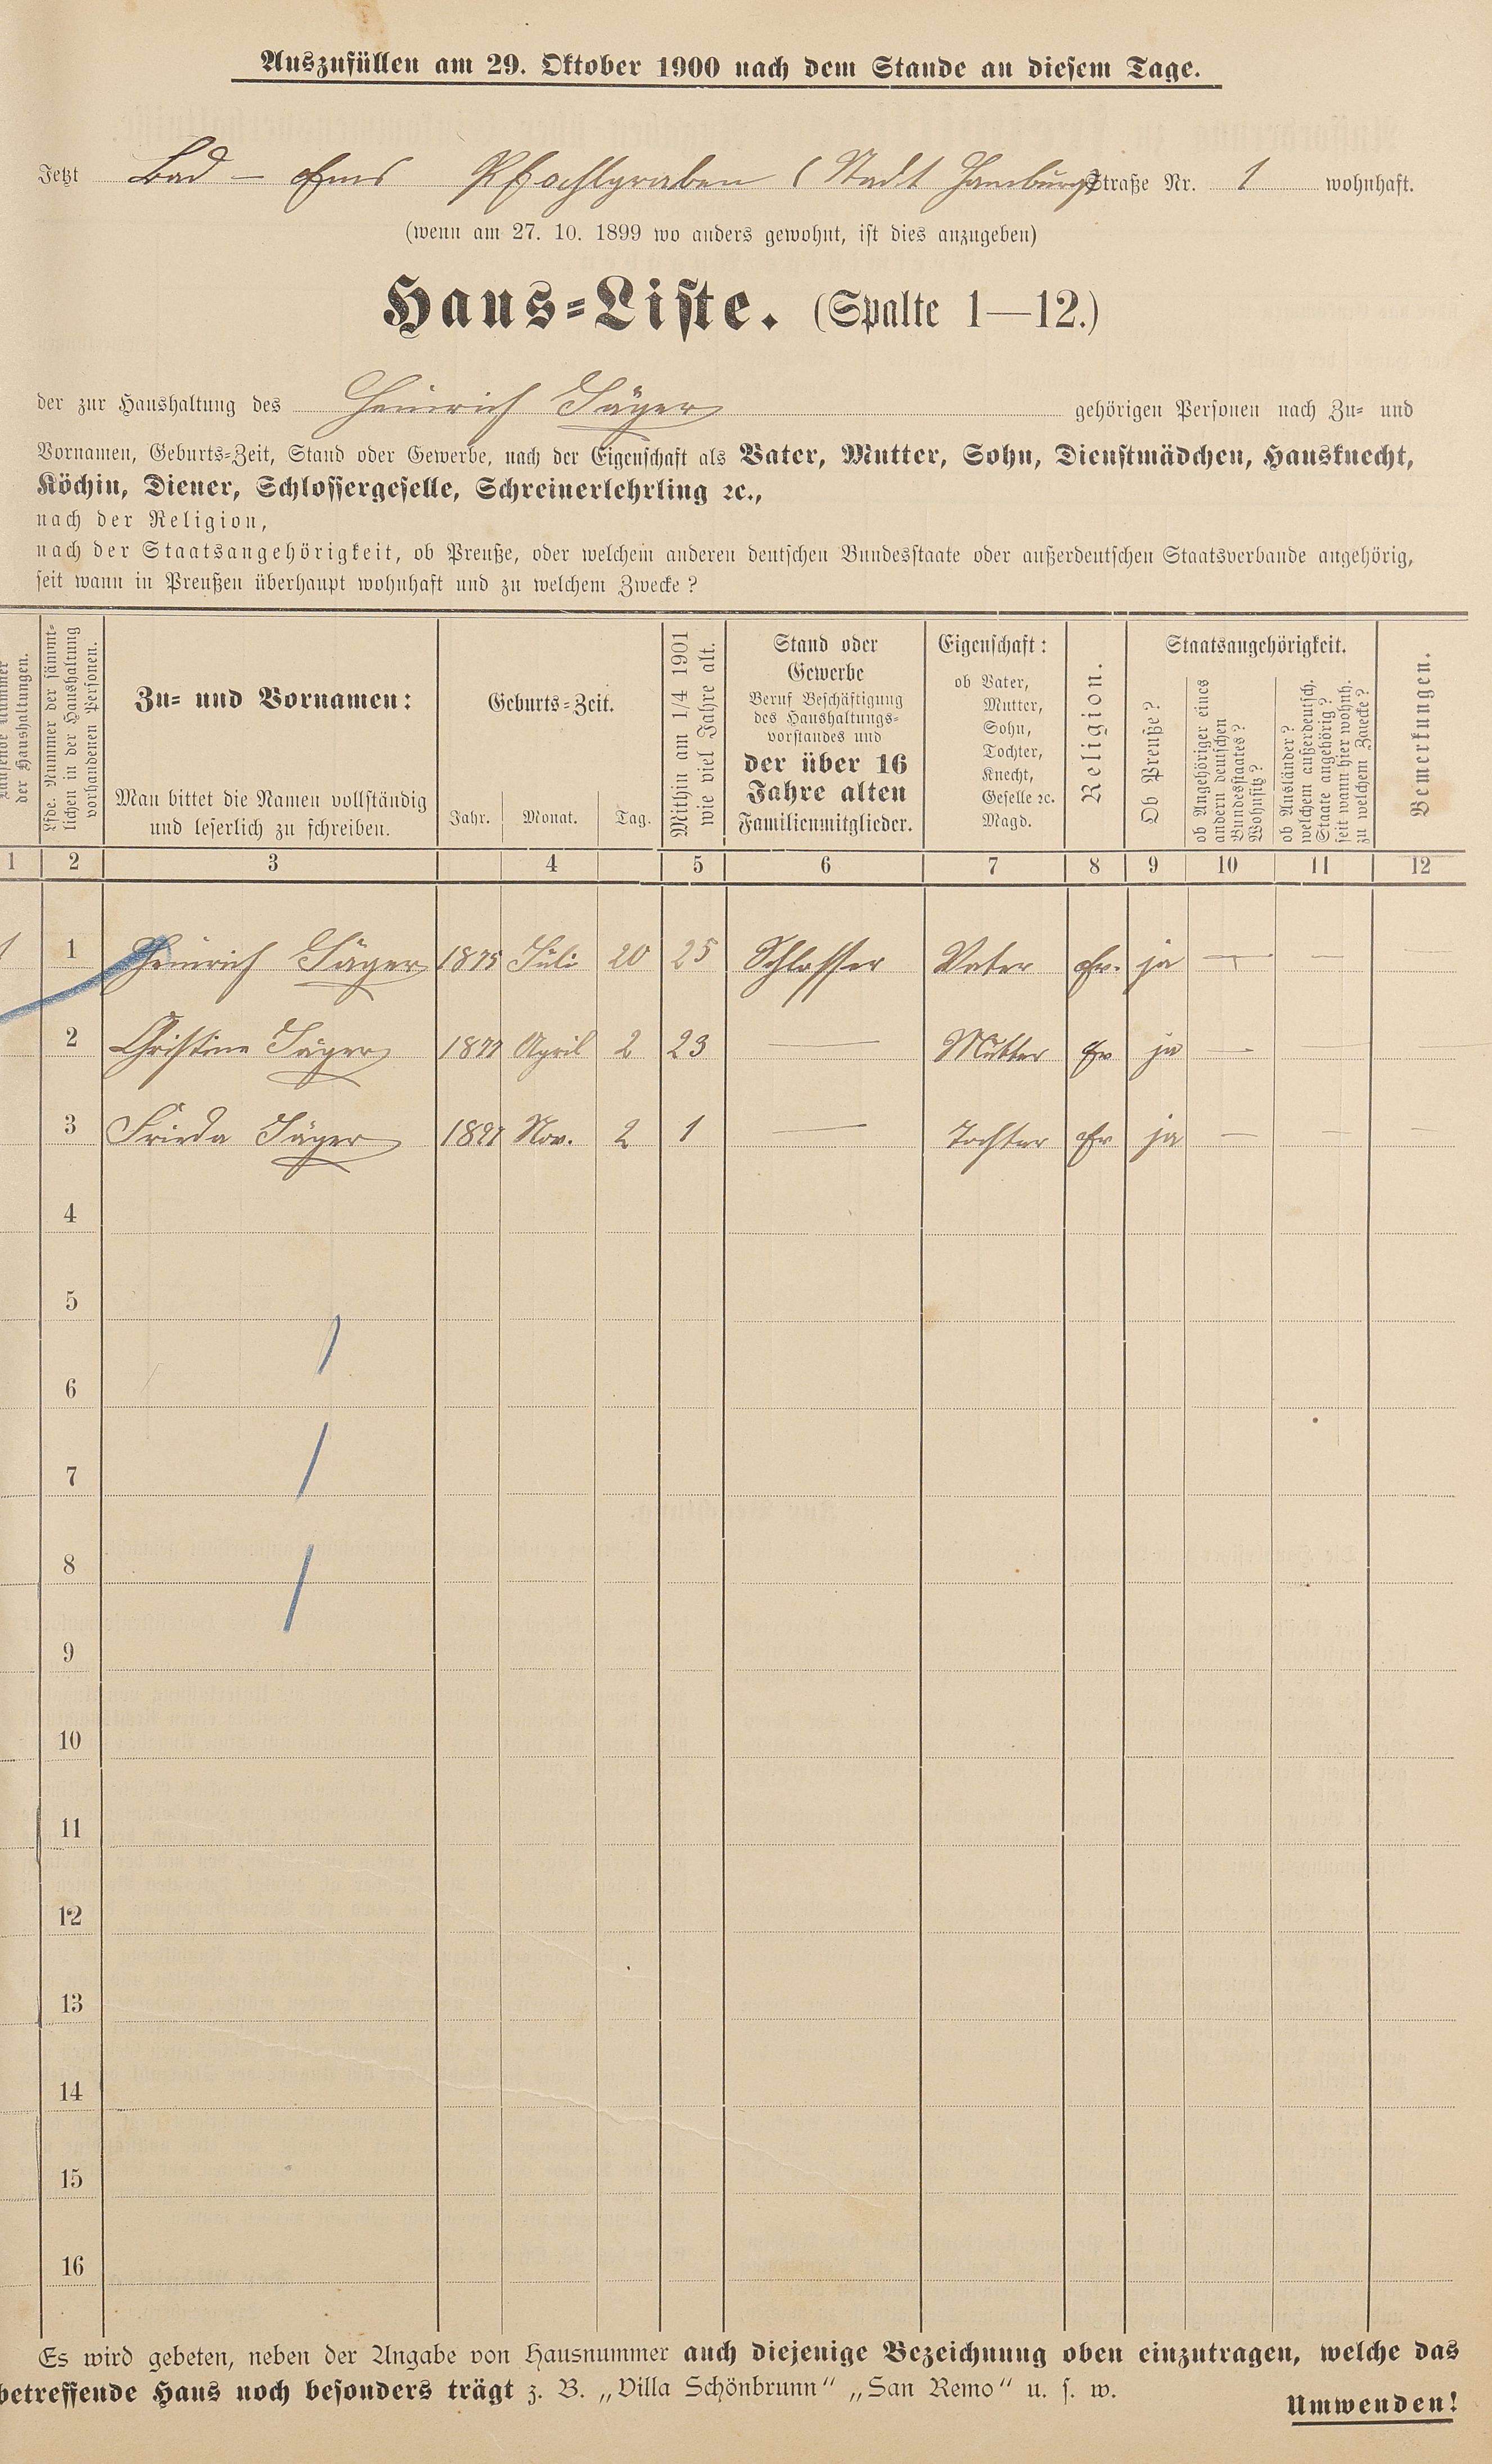 Auszufüllen am 29. Oktober 1900 nach dem Stande an diesem Tage.
Jetzt Bad - Ems Pfahlgraben (Stadt Hamburg) Straße Nr. 1 wohnhaft.
(wenn am 27. 10. 1899 wo anders gewohnt, ist dies anzugeben)
Haus-Liste. (Spalte 1—12.)
der zur Haushaltung des Heinrich Jäger gehörigen Personen nach Zu- und
Vornamen, Geburts-Zeit, Stand oder Gewerbe, nach der Eigenschaft als Vater, Mutter, Sohn, Dienstmädchen, Hausknecht,
Köchin, Diener, Schlossergeselle, Schreinerlehrling ꝛc.,
nach der Religion,
nach der Staatsangehörigkeit, ob Preuße, oder welchem anderen deutschen Bundesstaate oder außerdeutschen Staatsverbande angehörig,
seit wann in Preußen überhaupt wohnhaft und zu welchem Zwecke?
Laufende Nummer
der Haushaltungen.
Lfde. Nummer der sämmt-
lichen in der Haushaltung
vorhandenen Personen.
Zu- und Vornamen:
Man bittet die Namen vollständig
und leserlich zu schreiben.
Geburts-Zeit.
Jahr. Monat. Tag.
Mithin am 1/4 1901
wie viel Jahre alt.
Stand oder
Gewerbe
Beruf Beschäftigung
des Haushaltungs-
vorstandes und
der über 16
Jahre alten
Familienmitglieder.
Eigenschaft:
ob Vater,
Mutter,
Sohn,
Tochter,
Knecht,
Geselle ꝛc.
Magd.
Religion.
Staatsangehörigkeit.
Ob Preuße?
ob Angehöriger eines
andern deutschen
Bundesstaates?
Wohnsitz?
ob Ausländer?
welchem außerdeutsch.
Staate angehörig?
seit wann hier wohnh.
zu welchem Zwecke?
Bemerkungen.
1 2 3 4 5 6 7 8 9 10 11 12
1 1 Heinrich Jäger 1875 Juli 20 25 Schlosser Vater Ev. ja — — —
2 Christine Jäger 1877 April 2 23 — Mutter Ev ja — — —
3 Frieda Jäger Nov. 2 1 — Tochter Ev ja — — —
4
5
6
7
8
9
10
11
12
13
14
15
16
Es wird gebeten, neben der Angabe von Hausnummer auch diejenige Bezeichnung oben einzutragen, welche das
betreffende Haus noch besonders trägt z. B. „Villa Schönbrunn“ „San Remo“ u. s. w.
Umwenden!